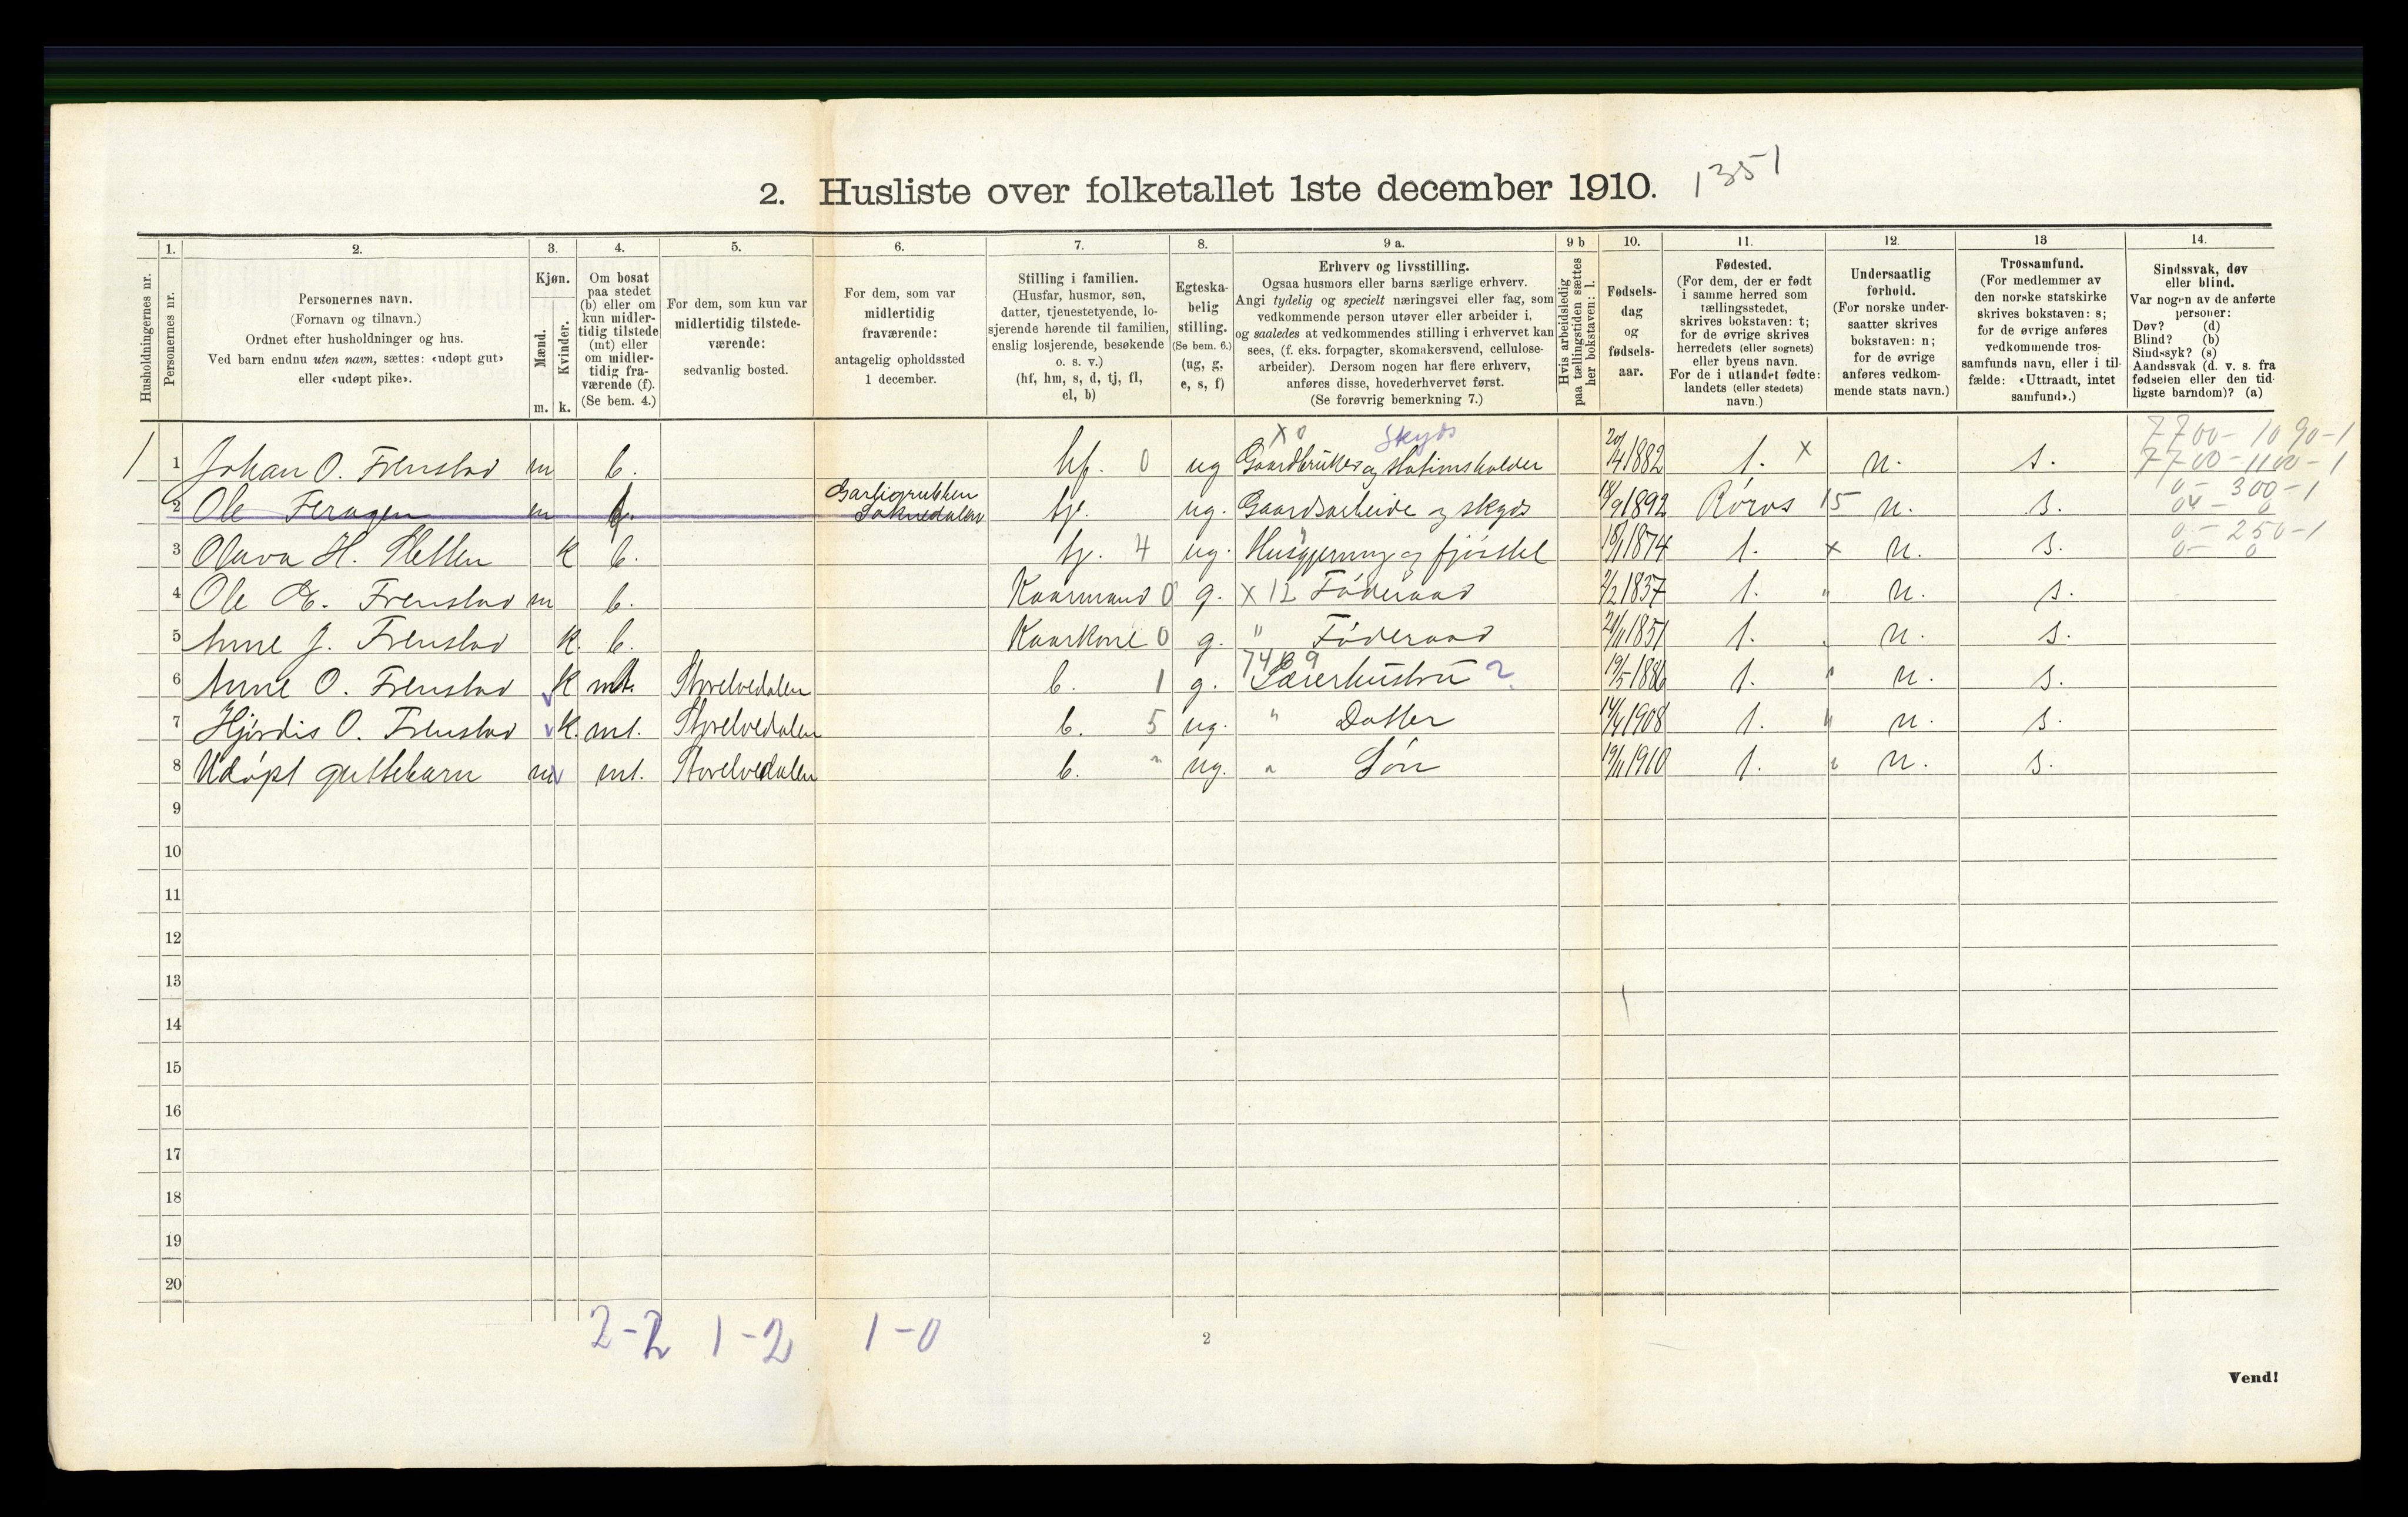 2. Husliste over folketallet 1ste december 1910. 1351
Husholdningernes nr.
1.
Personernes nr.
2.
Personernes navn.
(Fornavn og tilnavn.)
Ordnet efter husholdninger og hus.
Ved barn endnu uten navn, sættes: «udøpt gut»
eller «udøpt pike».
3.
Kjøn.
Mænd.
Kvinder.
m. k.
4.
Om bosat
paa stedet
(b) eller om
kun midler-
tidig tilstede
(mt) eller
om midler-
tidig fra-
værende (f).
(Se bem. 4.)
5.
For dem, som kun var
midlertidig tilstede-
værende:
sedvanlig bosted.
6.
For dem, som var
midlertidig
fraværende:
antagelig opholdssted
1 december.
7.
Stilling i familien.
(Husfar, husmor, søn,
datter, tjenestetyende, lo-
sjerende hørende til familien,
enslig losjerende, besøkende
o. s. v.)
(hf, hm, s, d, tj, fl,
el, b)
8.
Egteska-
belig
stilling.
(Se bem. 6.)
(ug, g,
e, s, f)
9 a.
Erhverv og livsstilling.
Ogsaa husmors eller barns særlige erhverv.
Angi tydelig og specielt næringsvei eller fag, som
vedkommende person utøver eller arbeider i,
og saaledes at vedkommendes stilling i erhvervet kan
sees, (f. eks. forpagter, skomakersvend, cellulose-
arbeider). Dersom nogen har flere erhverv,
anføres disse, hovederhvervet først.
(Se forøvrig bemerkning 7.)
9 b
Hvis arbeidsledig
paa tællingstiden sættes
her bokstaven: l.
10.
Fødsels-
dag
og
fødsels-
aar.
11.
Fødested.
(For dem, der er født
i samme herred som
tællingsstedet,
skrives bokstaven: t;
for de øvrige skrives
herredets (eller sognets)
eller byens navn.
For de i utlandet fødte:
landets (eller stedets)
navn.)
12.
Undersaatlig
forhold.
(For norske under-
saatter skrives
bokstaven: n;
for de øvrige
anføres vedkom-
mende stats navn.)
13
Trossamfund.
(For medlemmer av
den norske statskirke
skrives bokstaven: s;
for de øvrige anføres
vedkommende tros-
samfunds navn, eller i til-
fælde: «Uttraadt, intet
samfund».)
14.
Sindssvak, døv
eller blind.
Var nogen av de anførte
personer:
Døv? (d)
Blind? (b)
Sindssyk? (s)
Aandssvak (d. v. s. fra
fødselen eller den tid-
ligste barndom)? (a)
x 0 Skyds 7700-1090-1
1 1 Johan O. Frenstad m b. hf. 0 ug Gaardbruker og stationsholder 20/4 1882 t. x n. s. 7700-1100-1
Garligrubben 0-300-1
2 Ole Feragen m f. Soknedalen tj. ug. Gaardsarbeide og skyds 18/9 1892 Røros 15 n. s. 04-0
0-250-1
3 Olava H. Sletten k b. tj. 4 ug. Husgjerning og fjösstel 1874 t. x n. s. 0-0
4 Ole E. Frenstad m b. Kaarmand 0 g. x 12 Föderaad 2/2 1837 t. " n. s.
5 Anne J. Frenstad k. b. Kaarkone 0 g. " Föderaad 1851 t. " n. s.
6 Anne O. Frenstad k mt. Storelvedalen b. 1 g. Lærerhustru 2. 19/5 1886 t. " n. s.
7 Hjördis O. Frenstad k. mt. Storelvedalen b. 5 ug. " Datter 14/4 1908 t. " n. s.
8 Udöpt guttebarn m mt. Storelvedalen b. " ug. " Sön 19/11 1910 t. " n. s.
9
10
11
12
13
14
15
16
17
18
19
20
2-2 1-2 1-0
2
Vend!